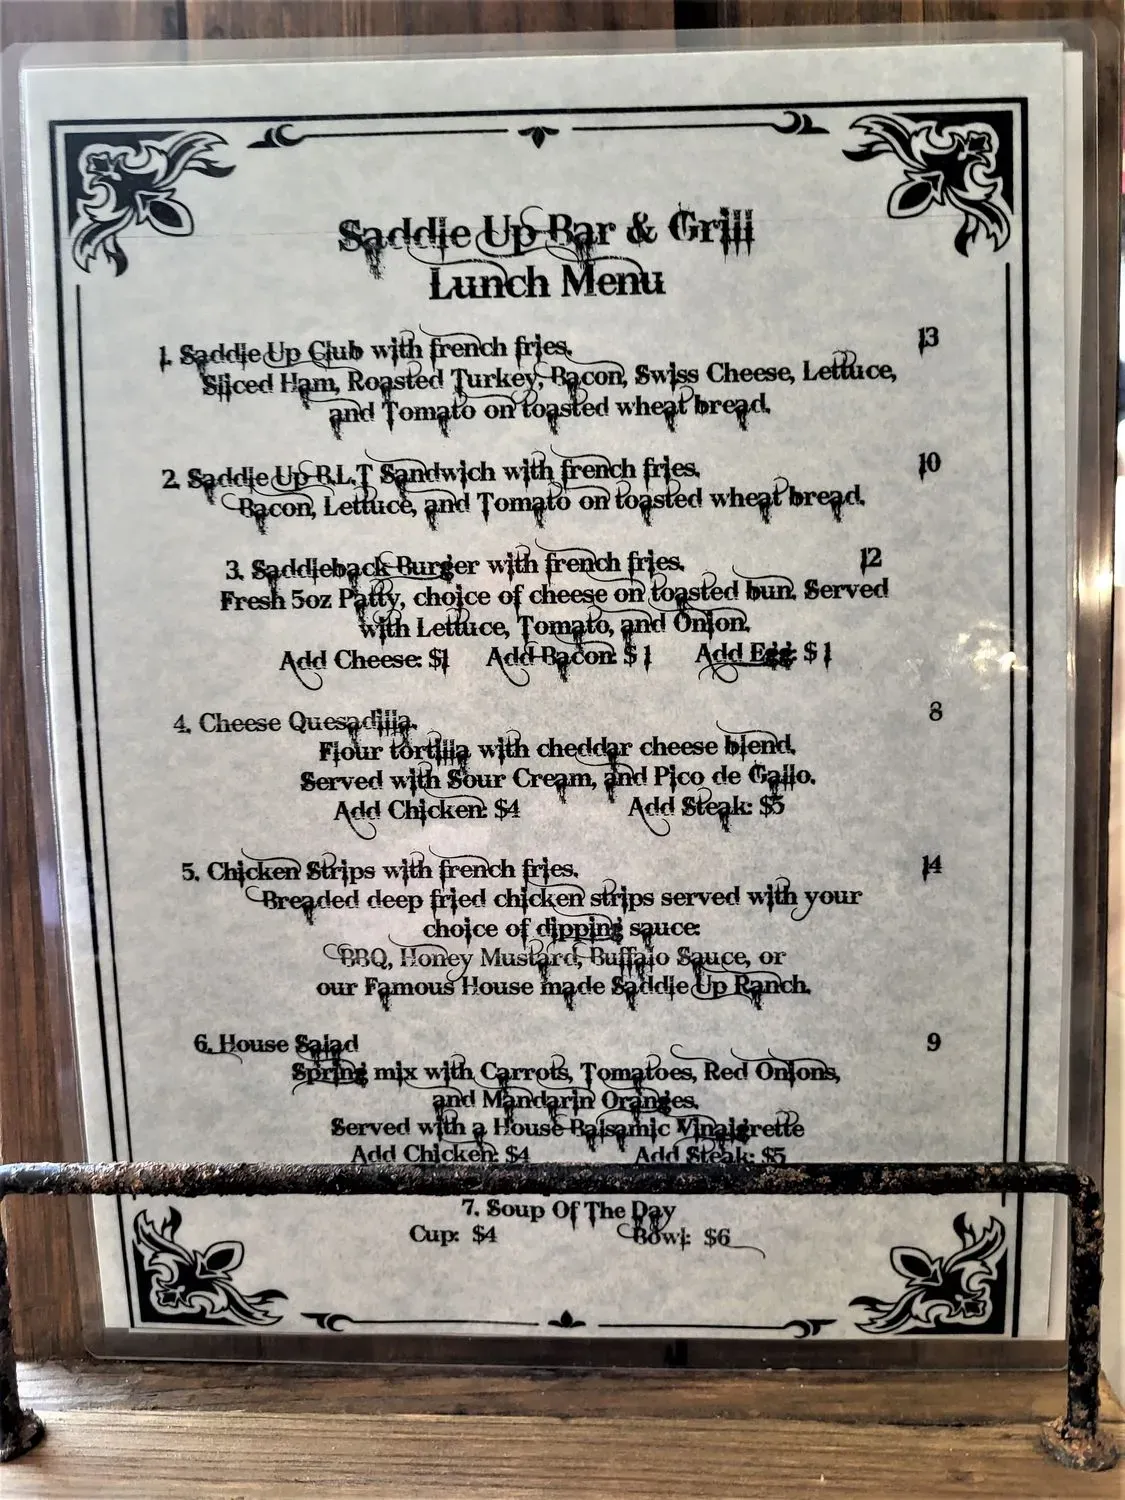 Saddle Up Bar & Grill
Lunch Menu
1. Saddle Up Club with french fries. 13
Sliced Ham, Roasted Turkey, Bacon, Swiss Cheese, Lettuce,
and Tomato on toasted wheat bread.
2. Saddle Up B.L.T Sandwich with french fries. 10
Bacon, Lettuce, and Tomato on toasted wheat bread.
3. Saddleback Burger with french fries. 12
Fresh 5oz Patty, choice of cheese on toasted bun. Served
with Lettuce, Tomato, and Onion.
Add Cheese: $1 Add Bacon: $1 Add Egg: $1
4. Cheese Quesadilla. 8
Flour tortilla with cheddar cheese blend.
Served with Sour Cream, and Pico de Gallo.
Add Chicken: $4 Add Steak: $5
5. Chicken Strips with french fries. 14
Breaded deep fried chicken strips served with your
choice of dipping sauce:
BBQ, Honey Mustard, Buffalo Sauce, or
our Famous House made Saddle Up Ranch.
6. House Salad 9
Spring mix with Carrots, Tomatoes, Red Onions,
and Mandarin Oranges.
Served with a House Balsamic Vinaigrette
Add Chicken: $4 Add Steak: $5
7. Soup Of The Day
Cup: $4 Bowl: $6